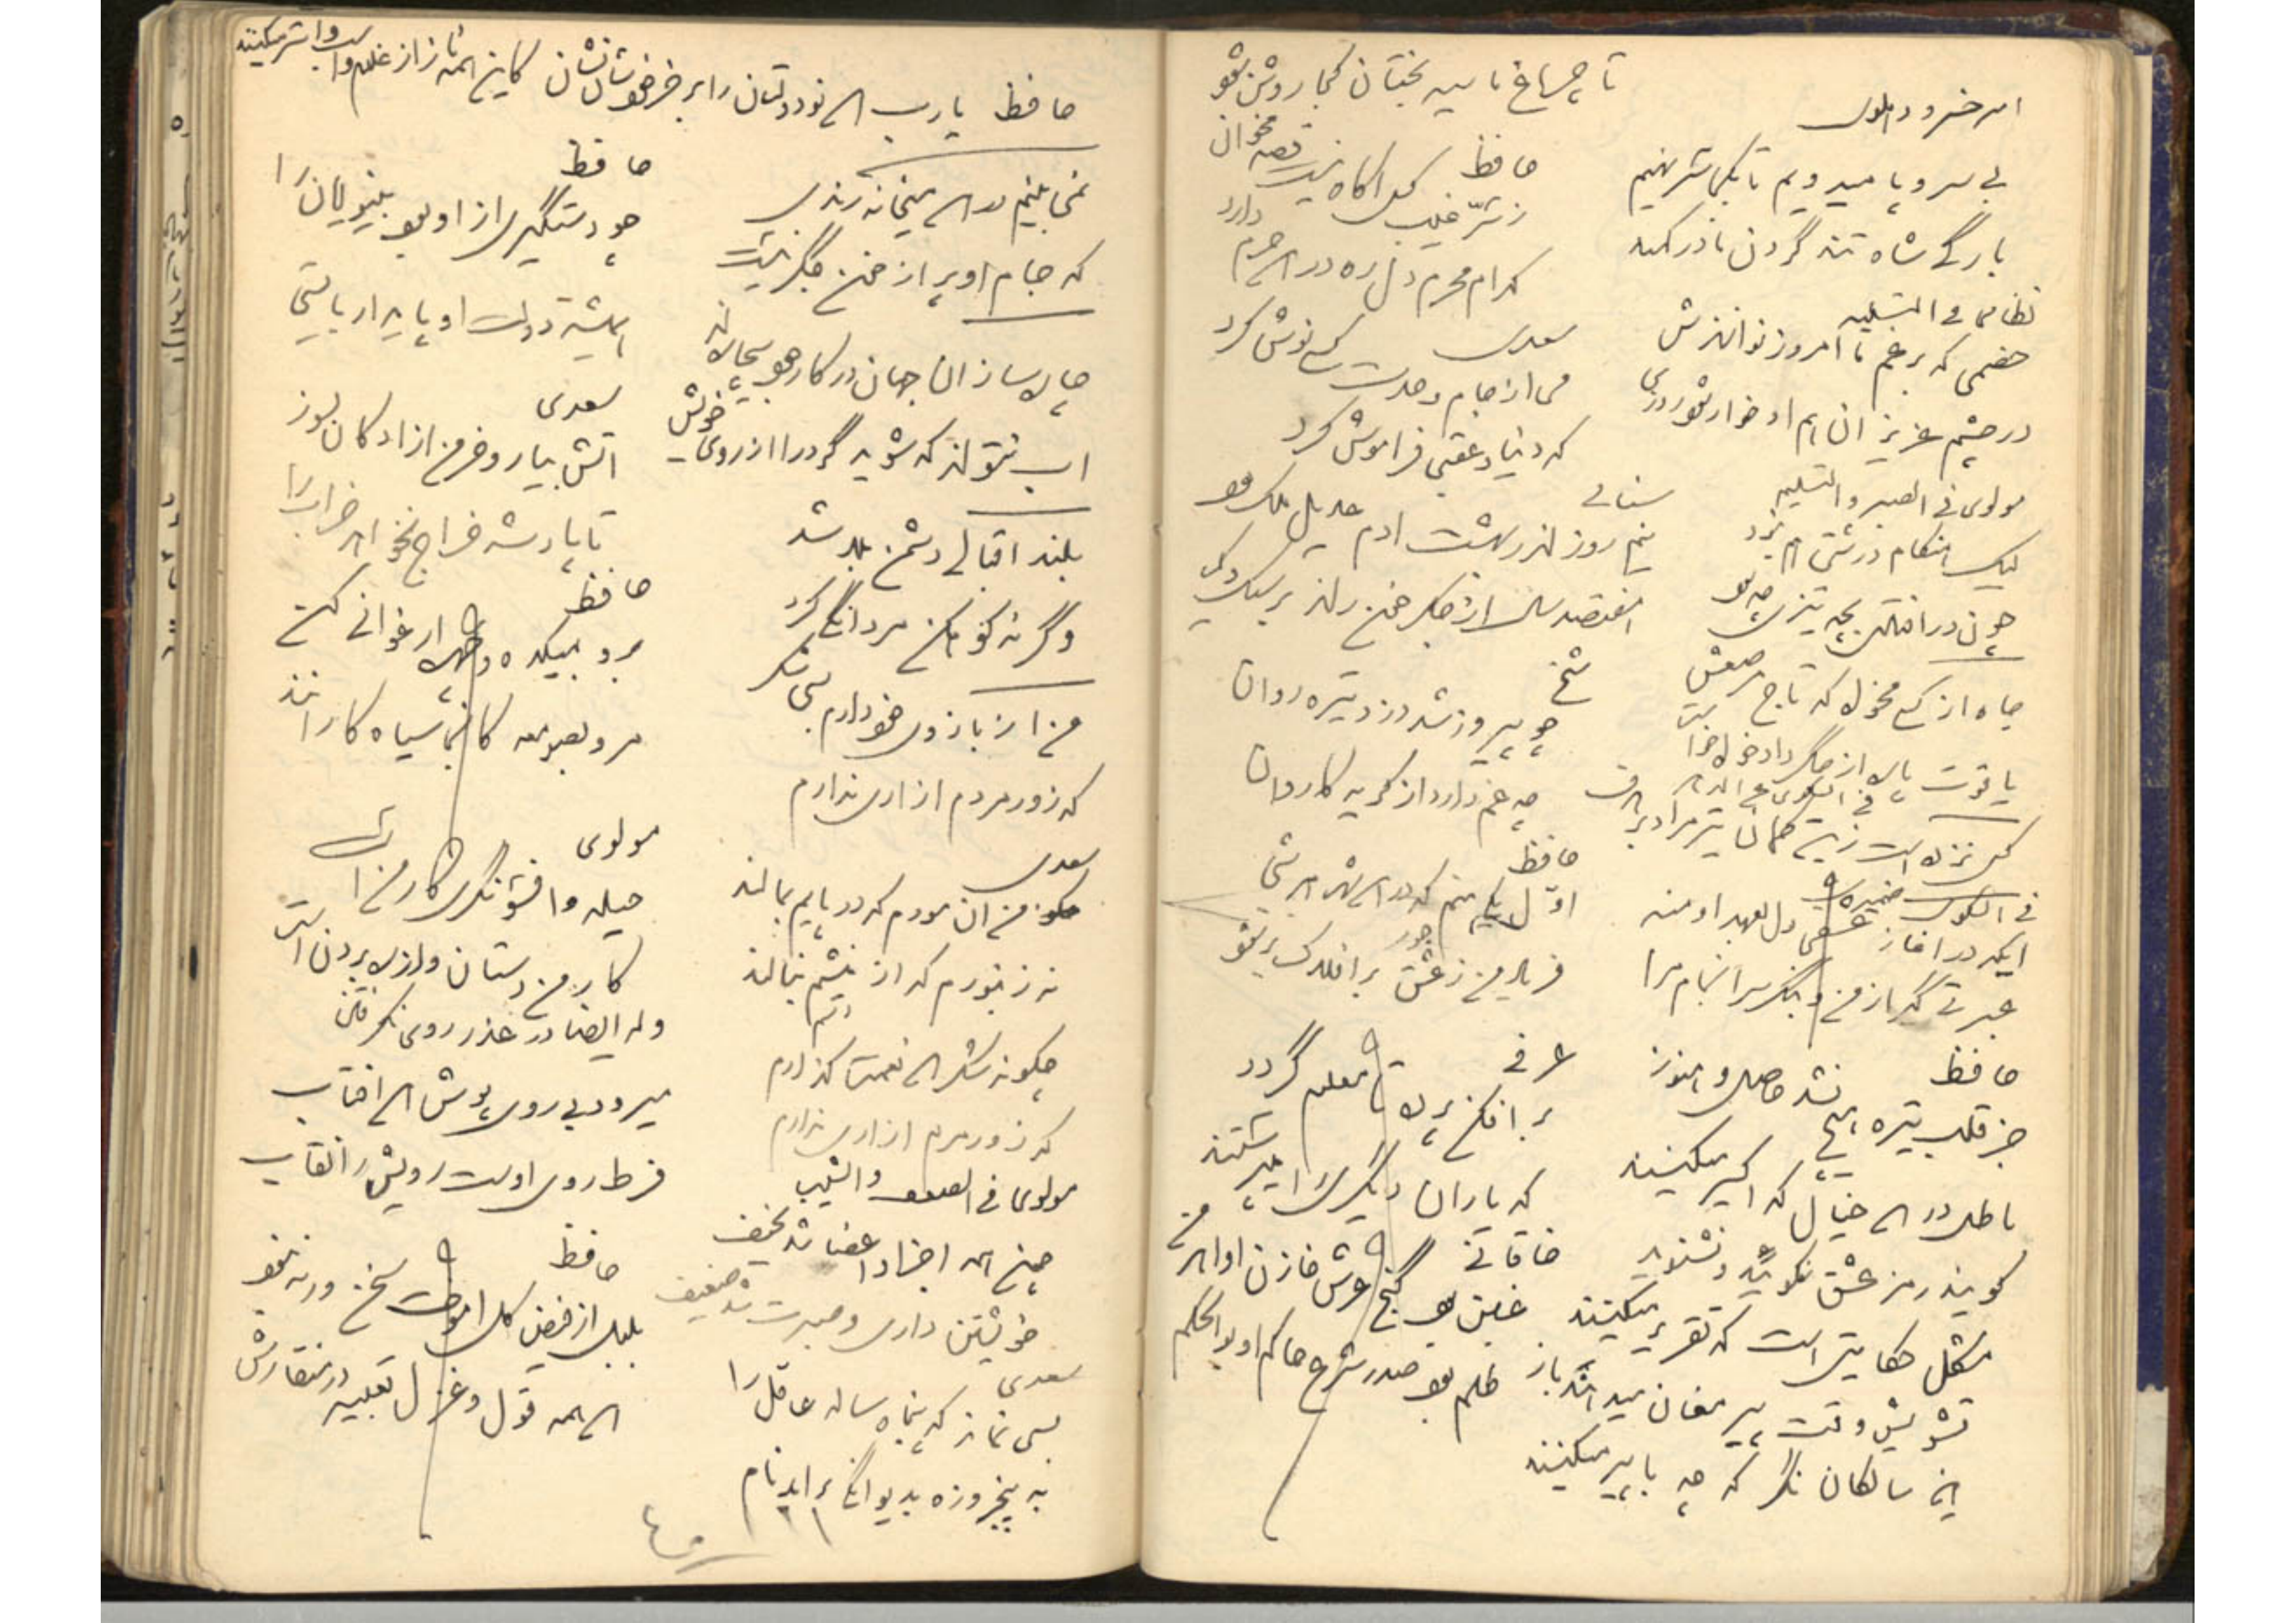 تا چراغ ما سیه بختان کجا روشن شود
امیر خسرو دهلوی
بی سر و پا میرویم تا بکجا سر نهیم
بارگی شاه تند گردن ما در کمند
نظامی فی التسلیه
خصمی که برغم ما امروز نوانیزش
در چشم عزیزان هم او خوار شود روزی
مولوی فی الصبر و التسلیه
لیک هنگام درشتی هم نبرد
چون در افتادی بچه تیزی چه سود
جاه از کسی مخواه که تاج مرصعش
یاقوت پاره از جگر داد خواه
کس نزده است زین کمان تیر مراد بر هدف
ایکه در آغاز عشقی دل بعهد او منه
عبرتی گیر از من و بنگر سرانجام مرا
حافظ
جز قلب تیره هیچ نشد حاصل و هنوز
باطل در این خیال که اکسیر میکنند
گویند رمز عشق مگوئید و مشنوید
مشکل حکایتی است که تقریر میکنند
تشویش وقت پیر مغان میدهند باز
این سالکان نگر که چه با پیر میکنند
حافظ
ز سر غیب کس آگاه نیست قصه مخوان
کدام محرم دل ره در این حرم دارد
سعدی
می از جام وحدت کسی نوش کرد
که دنیا و عقبی فراموش کرد
سنائی
نیم روز اندر بهشت آدم عدیل ملک بود
هفتصد سال از جگر خون راند بر سنگ و گی
شیخ
چو پیروز شد دزد تیره روان
چه غم دارد از گریه کاروان
حافظ
اول یکی منم که در این شهر هر شبی
فریاد من ز عشق بر افلاک بر شود
عرفی
بر افکن پرده تا معلوم گردد
که یاران دیگری را میپرستند
خاقانی
غبن بود گنج عرش خازن او اهرمن
ظلم بود صدر شرع حاکم او بوالحکم
حافظ یارب این نودولتان را بر خر خودشان نشان کاین همه ناز از غلام و اسب و استر میکنند
نمی بینم در این میخانه رندی
که جام او پر از خون جگر نیست
چاره سازان جهان در کار خود بیچاره اند
آب نتواند که شوید گرد را از روی خویش
بلند اقبالی دشمن بلا شد
وگرنه کوهکن مردانگی کرد
من از بازوی خود دارم بسی شکر
که زور مردم آزاری ندارم
سعدی
من آن مورم که در پایم بمالند
نه زنبورم که از نیشم بنالند
چگونه شکر این نعمت گذارم
که زور مردم آزاری ندارم
مولوی فی الضعف والشیب
چون همه اجزاء و اعضا شد نحیف
خویشتن داری و صبرت شد ضعیف
سعدی
بسی نماند که پنجاه ساله عاقل را
به پنجروزه بدیوانگی برآید نام
حافظ
چو دستگیری از او بود بینوایان را
همیشه دولت او پایدار بایستی
سعدی
آتش بیار و خرمن آزادگان بسوز
تا پادشه خراج نخواهد خراب را
حافظ
برو بمیکده و چهره ارغوانی کن
مرو بصومعه کانجا سیاه کارانند
مولوی
حیله و افسونگری کار من است
کار من دستان و از ره بردن است
وله ایضا در عذر روی نگرفتن
میرود بی روی پوش این آفتاب
فرط روی اوست رویش را نقاب
حافظ
بلبل از فیض گل آموخت سخن ورنه نبود
این همه قول و غزل تعبیه در منقارش